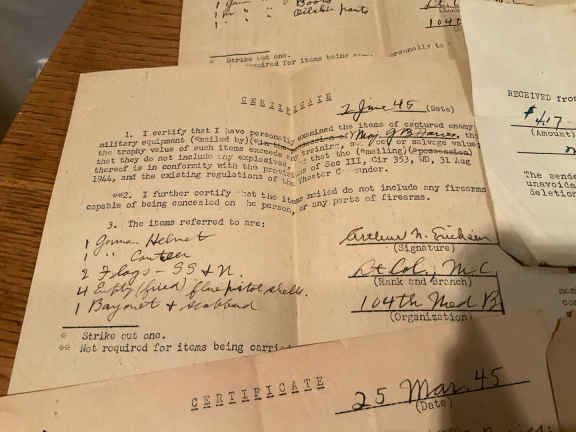 Boots
1 " " " Oilskin pants
104
* Strike out one.
required for items being personally to
RECEIVED from
$47.
(Amount)
The sende
unavoida
deletion
CERTIFICATE
2 June 45 (Date)
1. I certify that I have personally examined the items of captured enemy
military equipment (*mailed by) Maj. the
the trophy value of such items exceeds any training, or salvage value;
that they do not include any explosives, that the (*mailing)
thereof is in conformity with the provisions of Sec III, Cir 353, WD, 31 Aug
1944, and the existing regulations of the Theater Commander.
**2. I further certify that the items mailed do not include any firearms
capable of being concealed on the person, or any parts of firearms.
3. The items referred to are:
1 German Helmet
1 " Canteen
2 Flags - SS & N.
4 Empty (fired) flare pistol shells.
1 Bayonet & Scabbard
Arthur N. Erickson
(Signature)
Lt Col, M.C.
(Rank and Branch)
104th Med B
(Organization)
* Strike out one.
** Not required for items being carri
CERTIFICATE
25 Mar. 45
(Date)